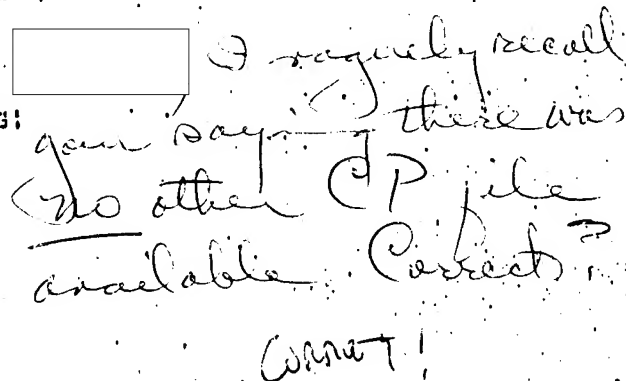 I vaguely recall
G!
your saying there was
no other CP file
available. Correct?
CORRECT!